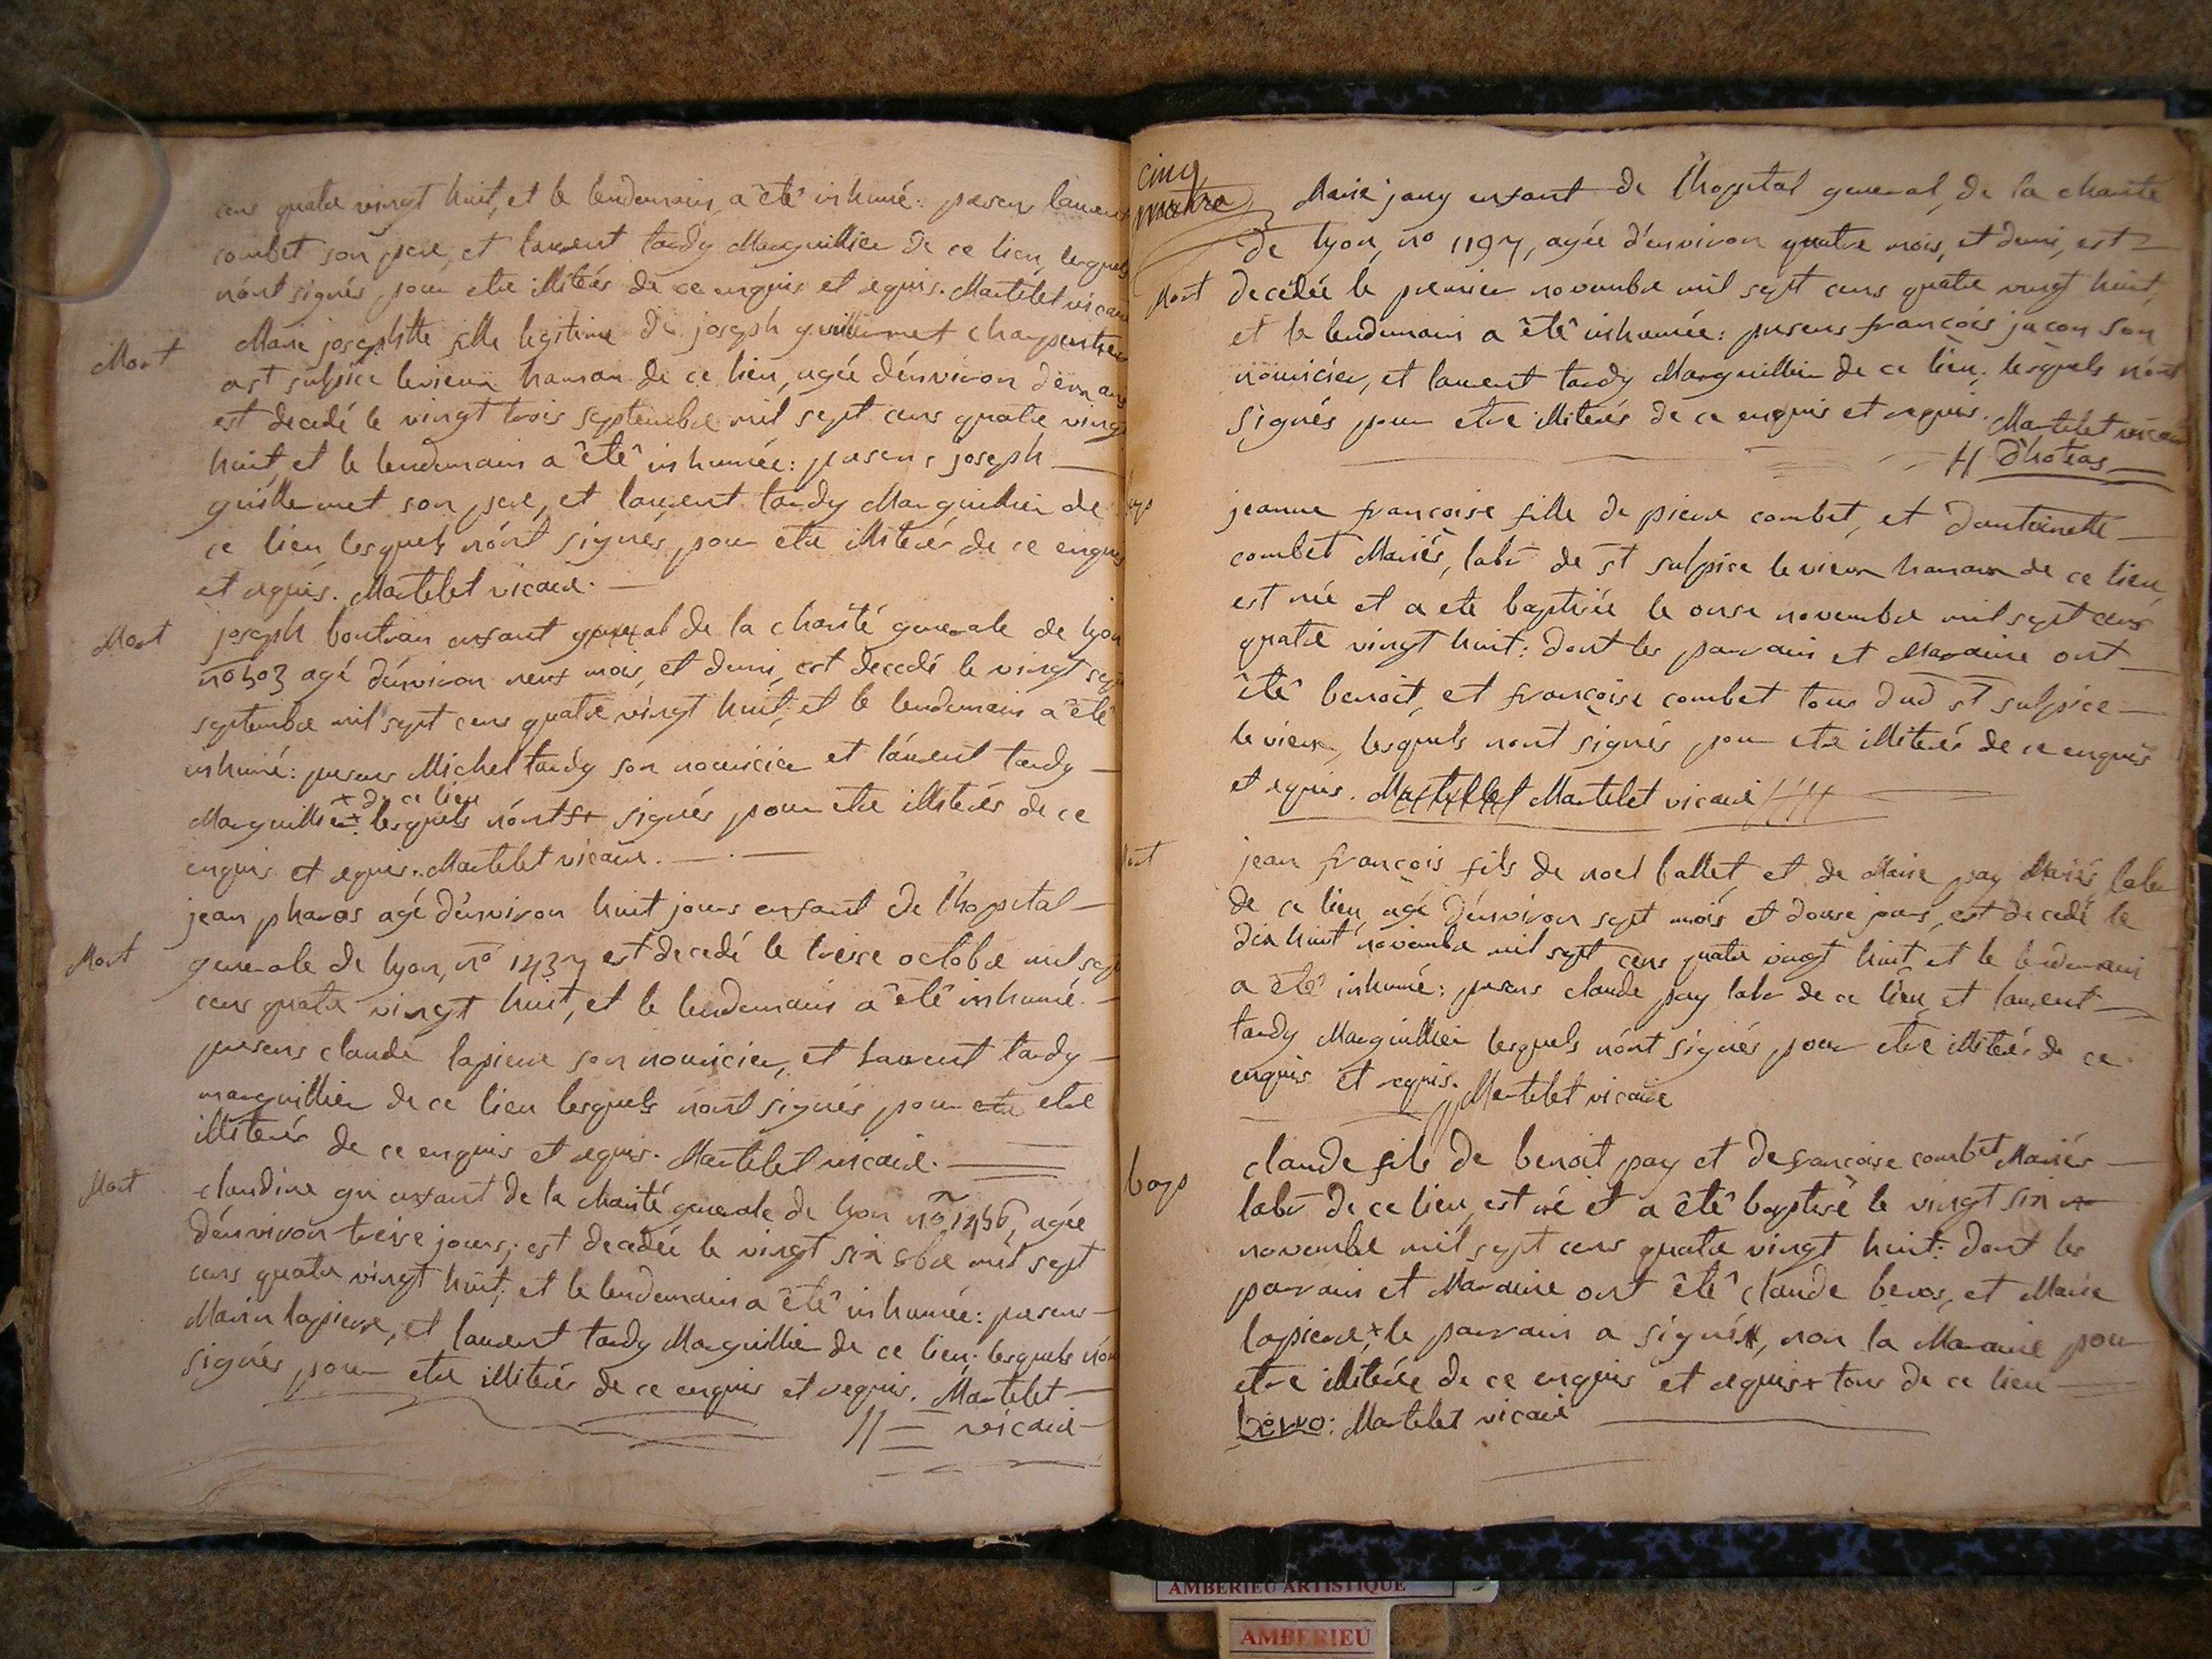 cens quatre vingt huit, et le lendemain, a êtê inhumé: presens laurent
combet son pere, et laurent tardy Marguillier de ce lieu, lesquels
n'ont signés, pour etre illiterés de ce enquis et requis. Martelet vicaire
Mort
Marie josephtte fille legitime de joseph guillermet charpentier
a st sulpice levieux hamau de ce lieu, agée d'environ deux ans
est decedé le vingt trois septembre mil sept cens quatre vingt
huit, et le lendemain a êtê inhumée: presens joseph
guillermet son pere, et laurent tardy Marguillier de
ce lieu lesquels n'ont signés, pour etre illiterés de ce enquis
et requis. Martelet vicaire.
Mort
joseph boutran enfant de la charité generale de lyon
no 503 agé d'environ neuf mois, et demi, est decedé le vingt sept
septembre mil sept cens quatre vingt huit, et le lendemain a êtê
inhumé: presens Michel tardy son nouricier et laurent tardy
+ de ce lieu
Marguillier+ lesquels n'ont signés pour etre illiterés de ce
enquis et requis. Martelet vicaire.
jean pharos agé d'environ huit jours enfant de l'hopital
Mort
generale de lyon, no 1437 est decedé le treise octobre mil sept
cens quatre vingt huit, et le lendemain a êtê inhumé.
presens claude lapierre son nouricier, et laurent tardy
marguillier de ce lieu lesquels n'ont signés, pour etre etre
illiterés de ce enquis et requis. Martelet vicaire.
Mort
claudine gu enfant de la charité generale de lyon no 1456, agée
d'environ treise jours, est decedée le vingt six 8bre mil sept
cens quatre vingt huit, et le lendemain a êtê inhumée: presens
Marin lapierre, et laurent tardy Marguillier de ce lieu: lesquels n'ont
signés, pour etre illiterés de ce enquis et requis. Martelet
vicaire
cinq
Marie jany enfant de l'hopital general, de la charite
de lyon, no 1197, agée d'environ quatre mois, et demi, est
Mort
decedée le premier novembre mil sept cens quatre vingt huit,
et le lendemain a êtê inhumée: presens françois jacon son
nouricier, et laurent tardy Marguillier de ce lieu; lesquels n'ont
signés pour etre illiterés de ce enquis et requis. Martelet vicaire
D'hotias
bap
jeanne françoise fille de pierre combet, et d'antoinette
combet Mariés, labr de st sulpice le vieux hamau de ce lieu
est née et a ete baptisée le onse novembre mil sept cens
quatre vingt huit: dont les parrain et Maraine ont
êtê benoit, et françoise combet tous dud st sulpice
le vieux, lesquels n'ont signés pour etre illiterés de ce enquis
et requis. Martelet vicaire
Mort
jean françois fils de noel ballet et de Marie pay Mariés labr
de ce lieu, agé d'environ sept mois et douse jours, est decedé le
dix huit novembre mil sept cens quatre vingt huit et le lendemain
a êtê inhumé: presens claude pay labr de ce lieu, et laurent
tardy Marguillier lesquels n'ont signés, pour etre illiterés de ce
enquis et requis. Martelet vicaire
bap
claude fils de benoit pay et de françoise combet Mariés
labr de ce lieu, est né et a êtê baptisé le vingt six
novembre mil sept cens quatre vingt huit: dont les
parrain et Maraine ont êtê claude beros, et Marie
lapierre,+ le parrain a signé, non la Maraine pour
etre illiterée de ce enquis et requis + tous de ce lieu
bero: Martelet vicaire
AMBERIEU ARTISTIQUE
AMBERIEU